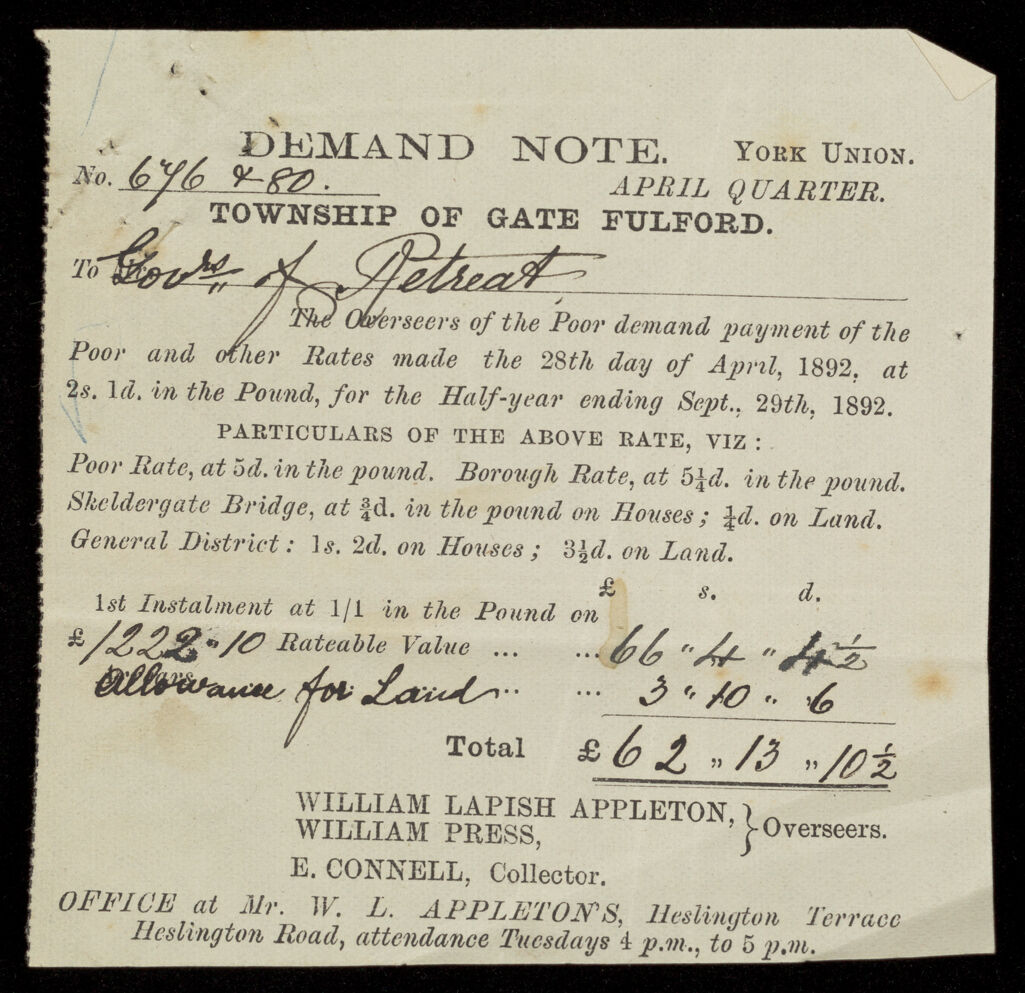 DEMAND NOTE. YORK UNION.
No. 676 & 80. APRIL QUARTER.
TOWNSHIP OF GATE FULFORD.
To Govrs of Retreat
The Overseers of the Poor demand payment of the
Poor and other Rates made the 28th day of April, 1892, at
2s. 1d. in the Pound, for the Half-year ending Sept., 29th, 1892.
PARTICULARS OF THE ABOVE RATE, VIZ :
Poor Rate, at 5d. in the pound. Borough Rate, at 5¼d. in the pound.
Skeldergate Bridge, at ¾d. in the pound on Houses ; ¼d. on Land.
General District : 1s. 2d. on Houses ; 3½d. on Land.
£ s. d.
1st Instalment at 1/1 in the Pound on
£1222 " 10 Rateable Value ... ... 66 " 4 " 4½
Allowance for Land ... ... 3 " 10 " 6
Total £62 " 13 " 10½
WILLIAM LAPISH APPLETON,
WILLIAM PRESS, } Overseers.
E. CONNELL, Collector.
OFFICE at Mr. W. L. APPLETON'S, Heslington Terrace
Heslington Road, attendance Tuesdays 4 p.m., to 5 p.m.